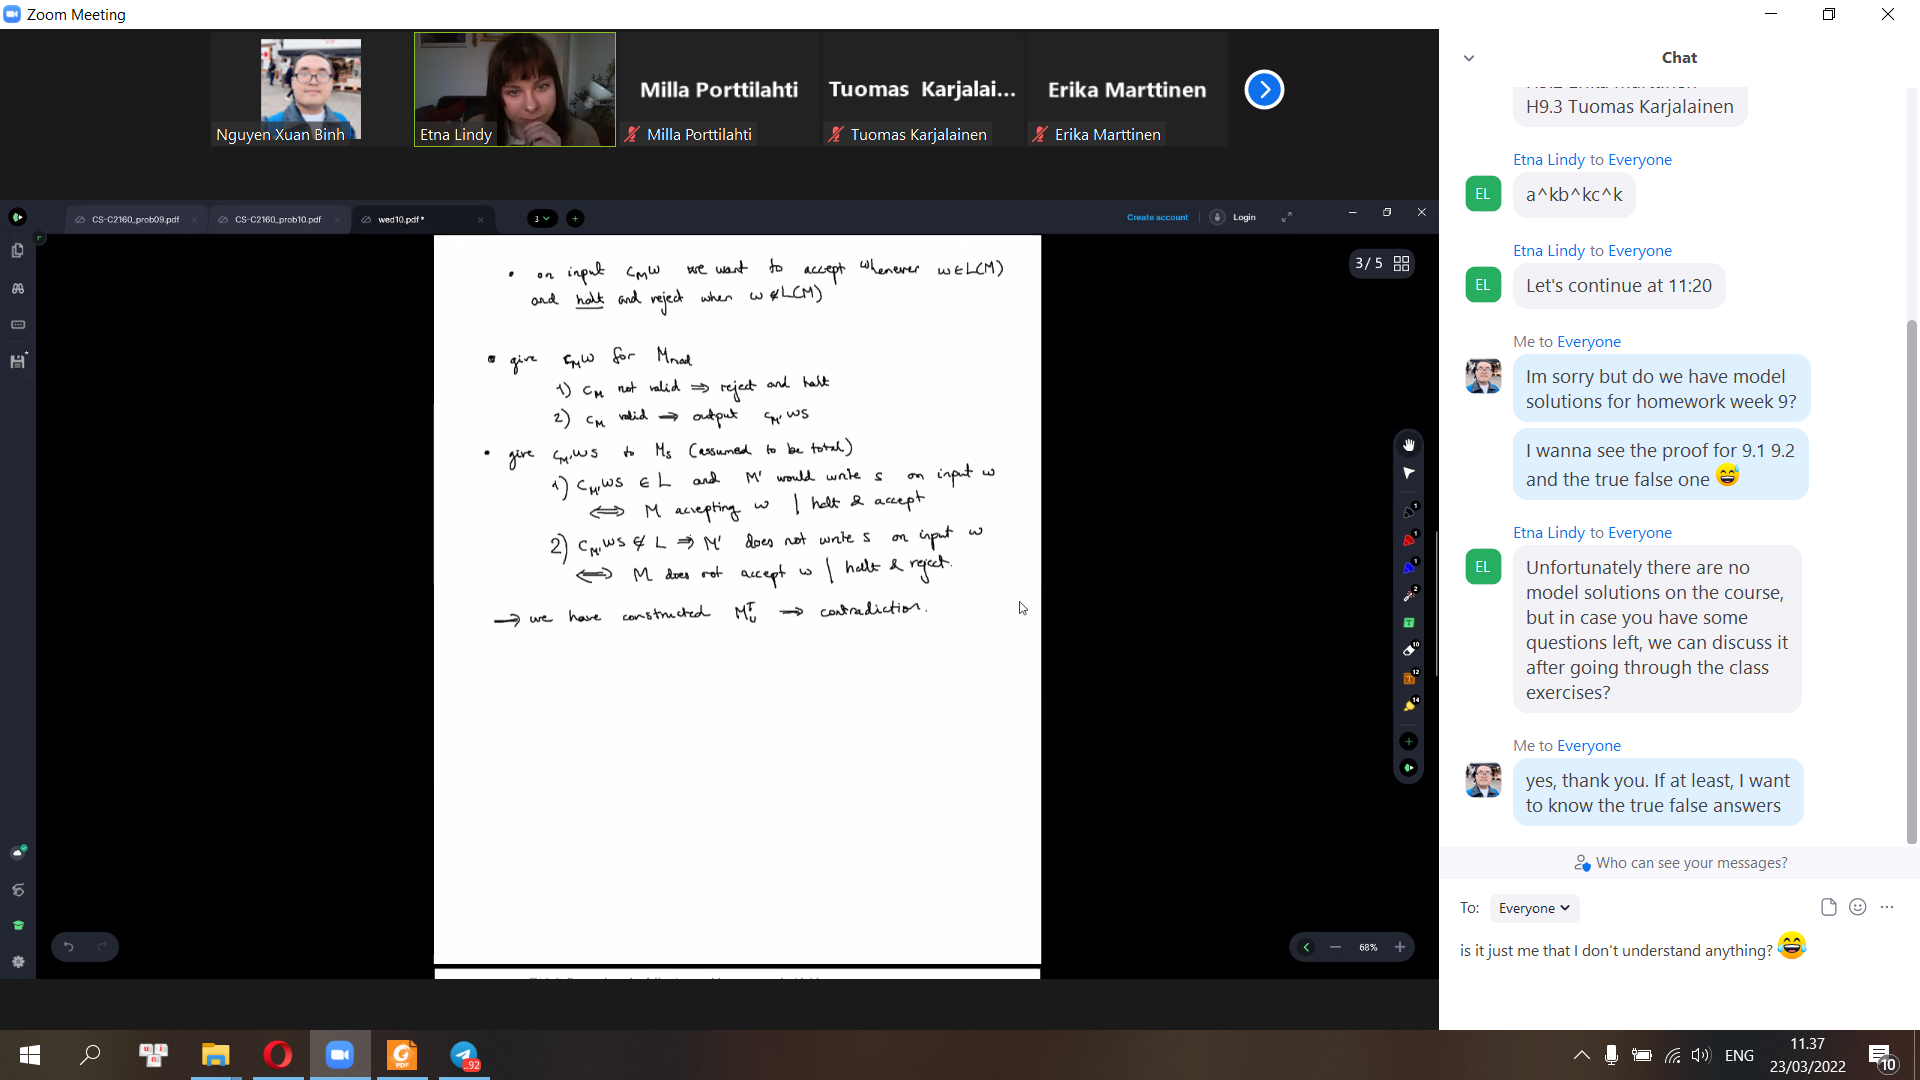 Zoom Meeting
Nguyen Xuan Binh
Etna Lindy
Milla Porttilahti
Milla Porttilahti
Tuomas Karjalai...
Tuomas Karjalainen
Erika Marttinen
Erika Marttinen
CS-C2160_prob09.pdf
CS-C2160_prob10.pdf
wed10.pdf *
3
Create account
Login
3 / 5
• on input c_M w we want to accept whenever w ∈ L(M)
and halt and reject when w ∉ L(M)
• give c_M w for M_mod
1) c_M not valid ⇒ reject and halt
2) c_M valid ⇒ output c_M' ws
• give c_M' ws to M_s (assumed to be total)
1) c_M' ws ∈ L and M' would write s on input w
⟺ M accepting w | halt & accept
2) c_M' ws ∉ L ⇒ M' does not write s on input w
⟺ M does not accept w | halt & reject.
→ we have constructed M_U^T → contradiction.
68%
Chat
H9.3 Tuomas Karjalainen
Etna Lindy to Everyone
EL
a^kb^kc^k
Etna Lindy to Everyone
EL
Let's continue at 11:20
Me to Everyone
Im sorry but do we have model
solutions for homework week 9?
I wanna see the proof for 9.1 9.2
and the true false one 😅
Etna Lindy to Everyone
EL
Unfortunately there are no
model solutions on the course,
but in case you have some
questions left, we can discuss it
after going through the class
exercises?
Me to Everyone
yes, thank you. If at least, I want
to know the true false answers
Who can see your messages?
To: Everyone
is it just me that I don't understand anything? 😂
92
ENG
11.37
23/03/2022
10